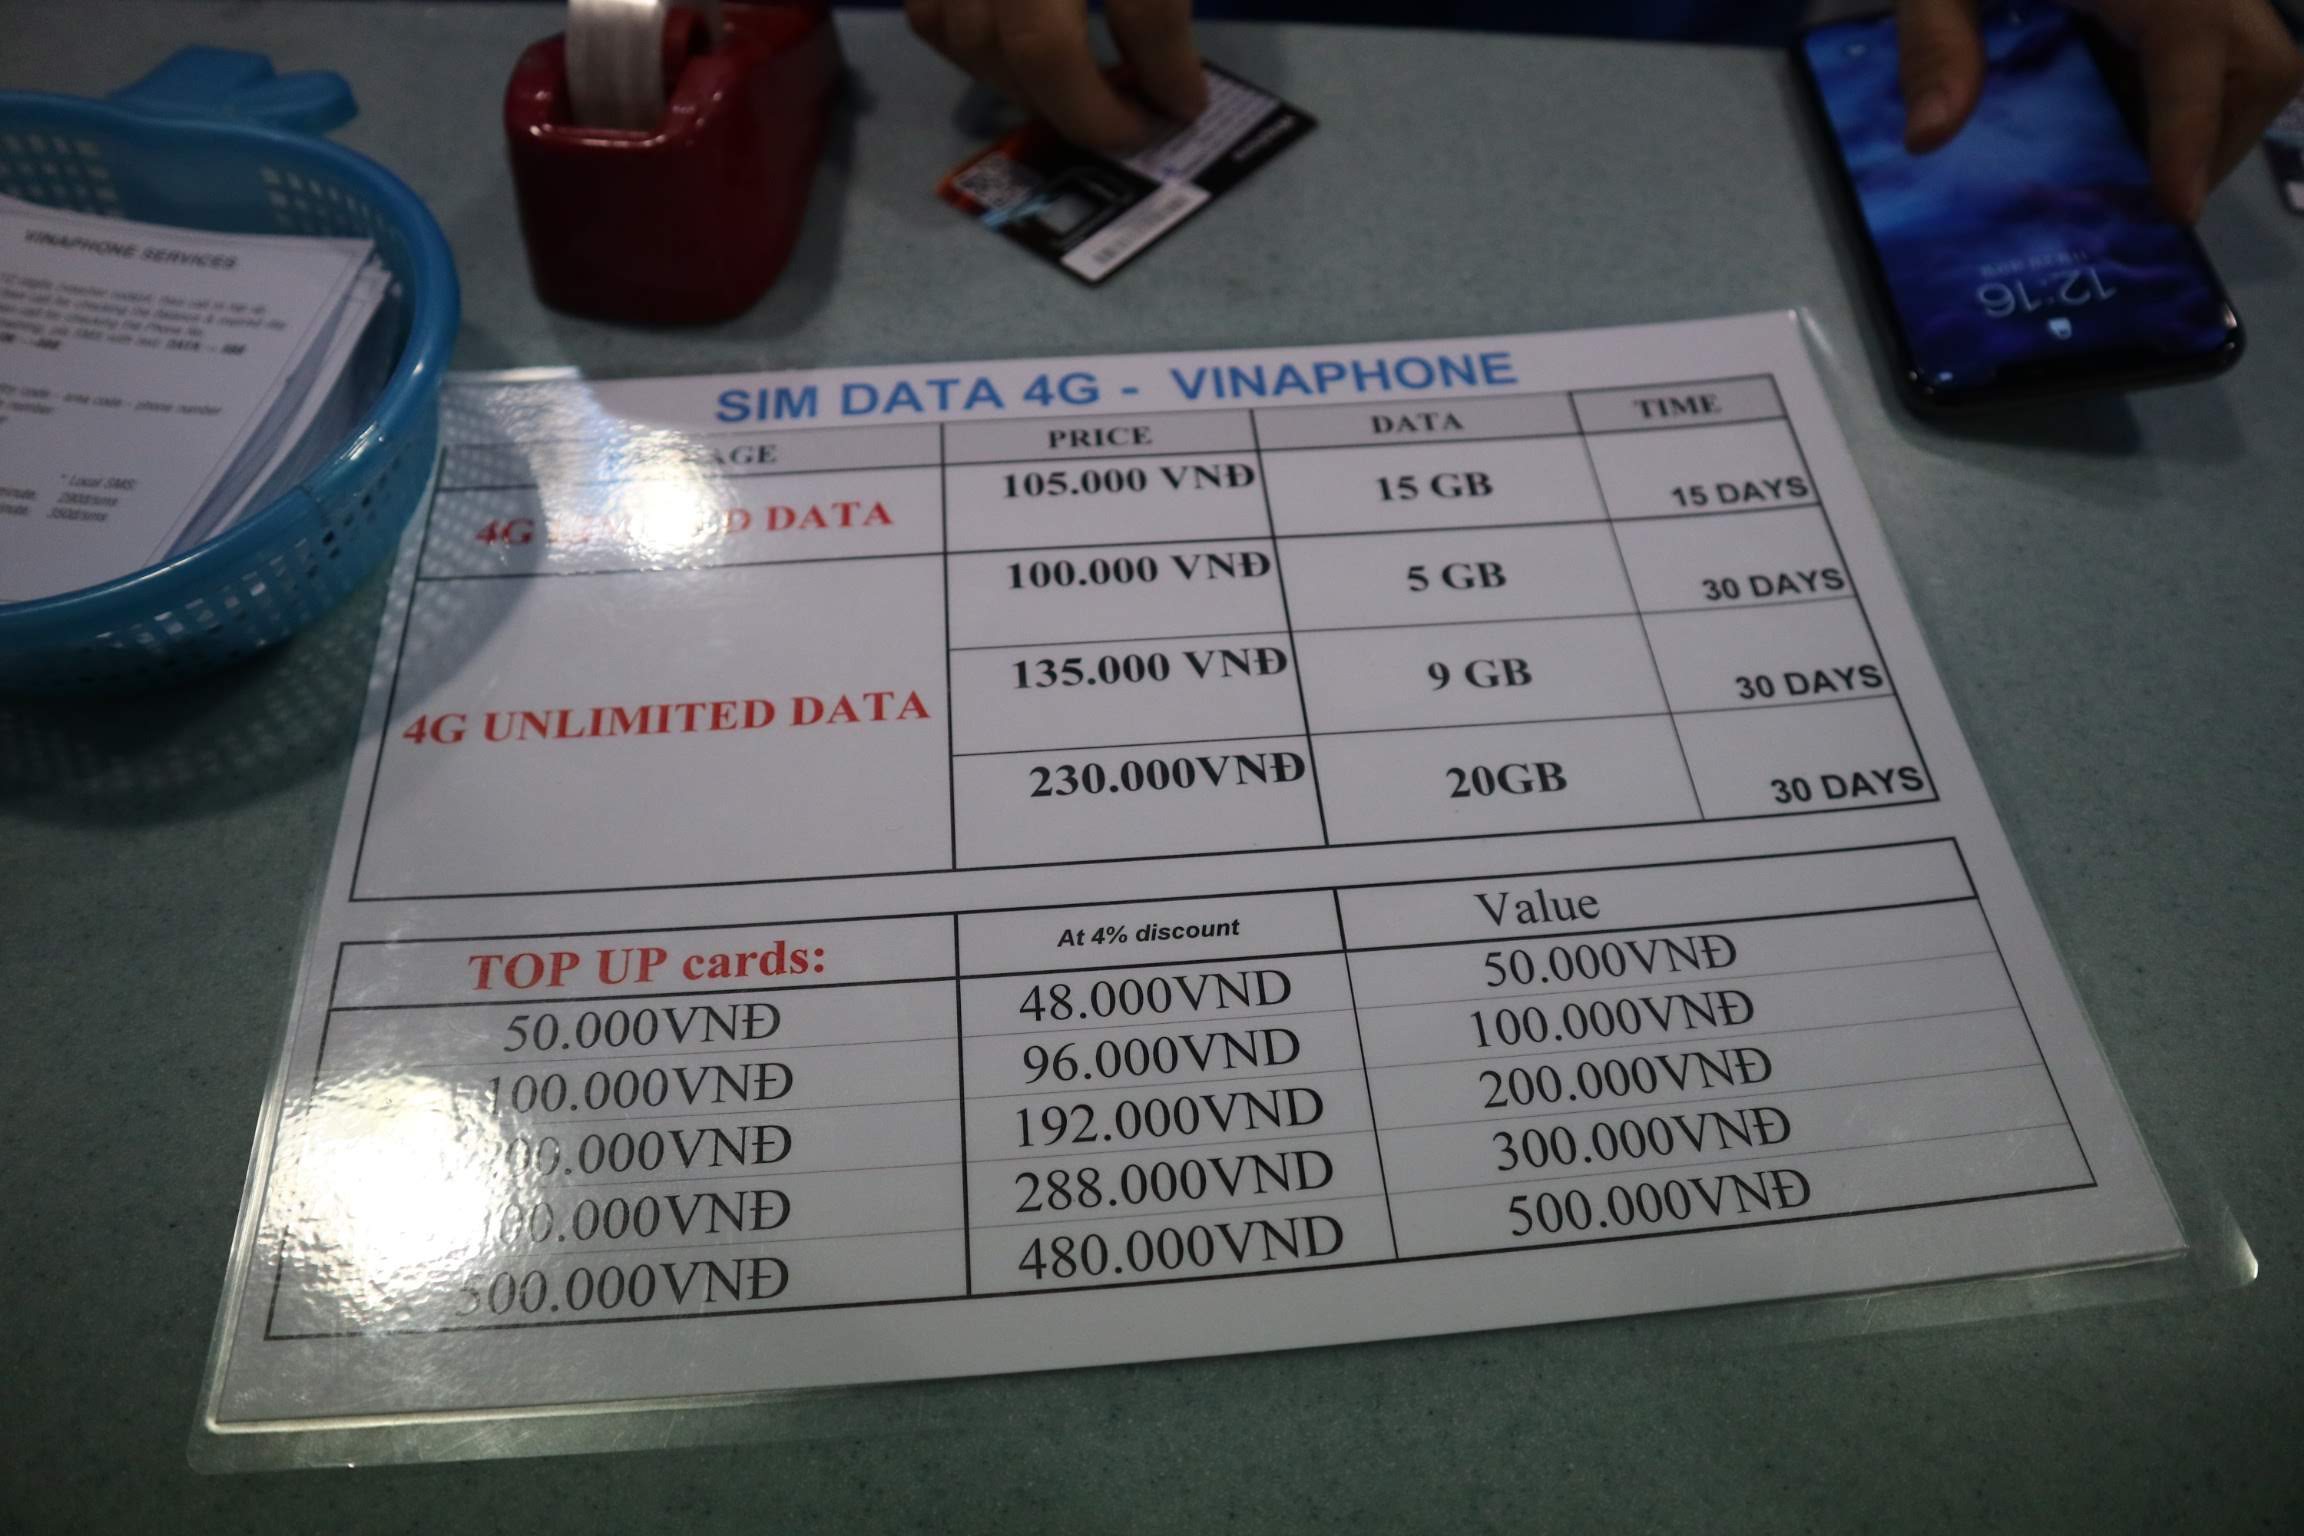 VINAPHONE SERVICES
* Local SMS:
12:16
SIM DATA 4G - VINAPHONE
PRICE DATA TIME
4G DATA 105.000 VNĐ 15 GB 15 DAYS
4G UNLIMITED DATA 100.000 VNĐ 5 GB 30 DAYS
135.000 VNĐ 9 GB 30 DAYS
230.000VNĐ 20GB 30 DAYS
TOP UP cards: At 4% discount Value
50.000VNĐ 48.000VND 50.000VNĐ
100.000VNĐ 96.000VND 100.000VNĐ
192.000VND 200.000VNĐ
288.000VND 300.000VNĐ
500.000VNĐ 480.000VND 500.000VNĐ